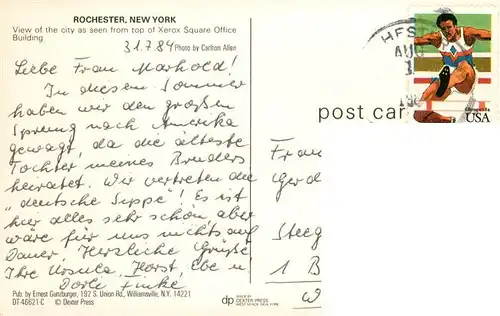 ROCHESTER, NEW YORK
View of the city as seen from top of Xerox Square Office
Building
31.7.84 Photo by Carlton Allen
Liebe Frau Marhold!
In diesem Sommer
haben wir den großen
Sprung nach Amerika
gewagt, da die älteste
Tochter meines Bruders
heiratet. Wir vertreten die
„deutsche Sippe“! Es ist
hier alles sehr schön, aber
wäre für uns nichts auf
Dauer. Herzliche Grüße
Ihre Ursula, Horst, Ebe u
Dorle Finke
Pub. by Ernest Gunzburger, 192 S. Union Rd., Williamsville, N.Y. 14221
DT-46621-C © Dexter Press
post car
HFS
AUG
USA
Frau
Gerd
Steeg
1 B
dp MADE BY
DEXTER PRESS
WEST NYACK, NEW YORK